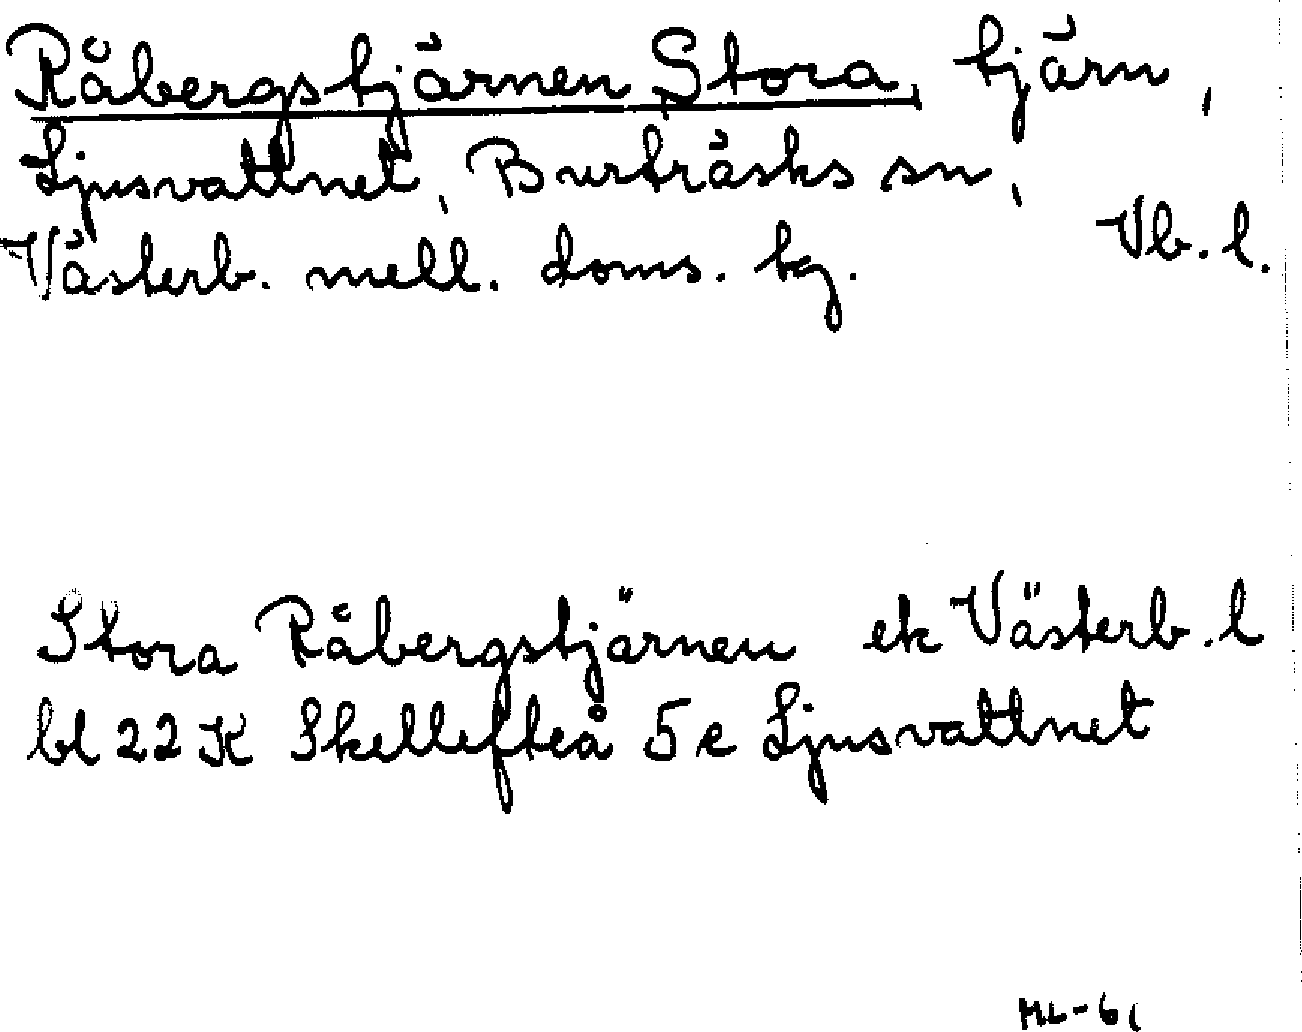 Råbergstjärnen Stora, tjärn,
Ljusvattnet, Burträsks sn,
Västerb. mell. doms. tg. Vb. l.
Stora Råbergstjärnen ek Västerb. l
bl 22 K Skellefteå 5 e Ljusvattnet
ML-61